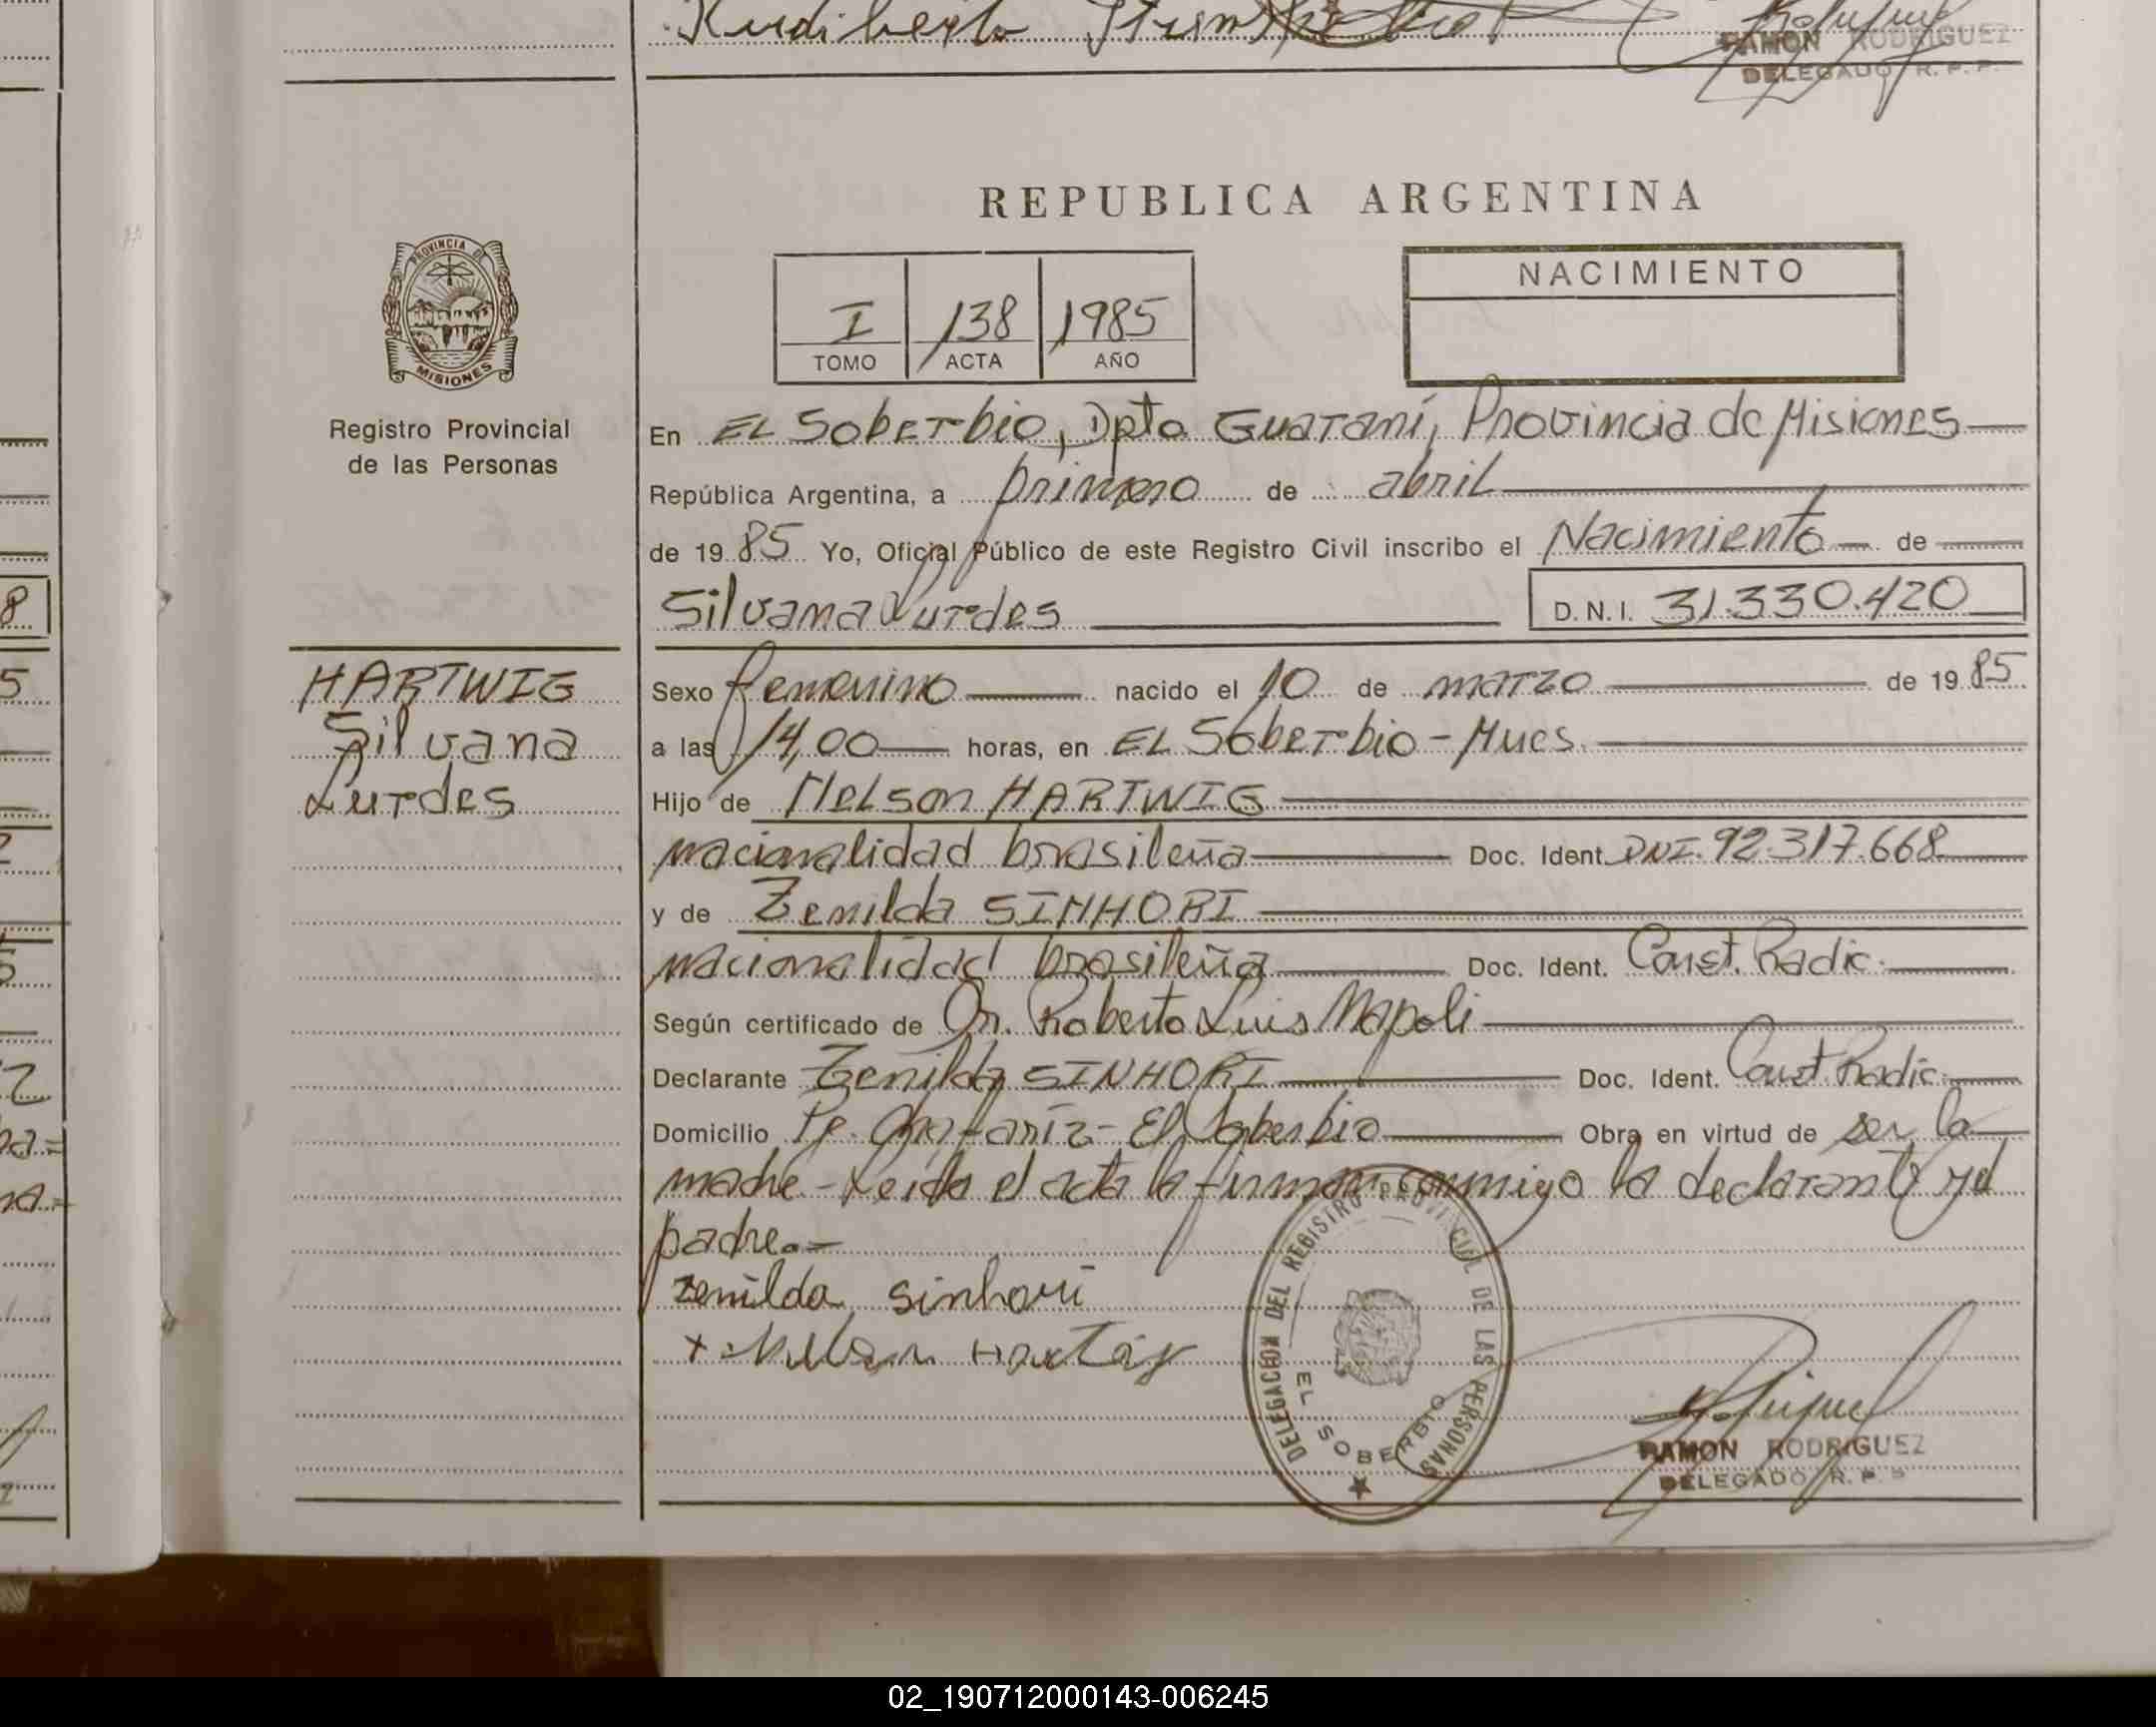 Rudiberto
RAMON RODRIGUEZ
DELEGADO R. P. P.
REPUBLICA ARGENTINA
PROVINCIA DE
MISIONES
Registro Provincial
de las Personas
I 138 1985
TOMO ACTA AÑO
NACIMIENTO
En EL Soberbio, Dpto Guaraní, Provincia de Misiones
República Argentina, a primero de abril
de 1985 Yo, Oficial Público de este Registro Civil inscribo el Nacimiento de
Silvana Lurdes D.N.I. 31.330.420
HARTWIG
Silvana
Lurdes
Sexo femenino nacido el 10 de marzo de 1985
a las 14,00 horas, en EL Soberbio - Mnes.
Hijo de Nelson HARTWIG
nacionalidad brasileña Doc. Ident. DNI. 92.317.668
y de Zenilda SINHORI
nacionalidad brasileña Doc. Ident. Const. Radic.
Según certificado de Dr. Roberto Luis Napoli
Declarante Zenilda SINHORI Doc. Ident. Const. Radic.
Domicilio El Soberbio Obra en virtud de ser la
madre - Leida el acta la firman conmigo la declarante y el
padre.=
zenilda sinhori
DELEGACION DEL REGISTRO PROVINCIAL DE LAS PERSONAS
EL SOBERBIO
RAMON RODRIGUEZ
DELEGADO R. P. P.
02_190712000143-006245